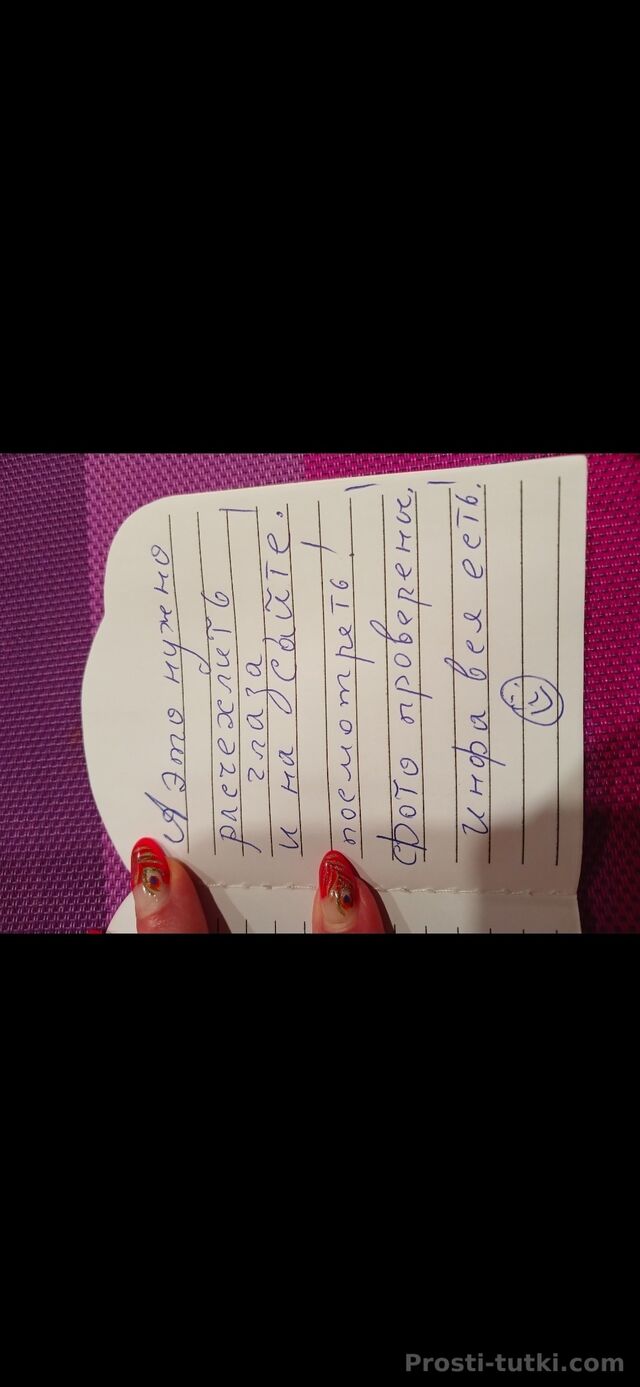 А это нужно
расчехлить
глаза
и на сайте.
посмотреть!
фото проверены!
инфа вся есть!
Prosti-tutki.com